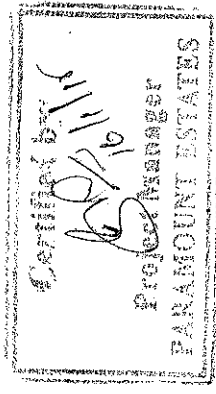 Certified by:
Project Manager
PARAMOUNT ESTATES